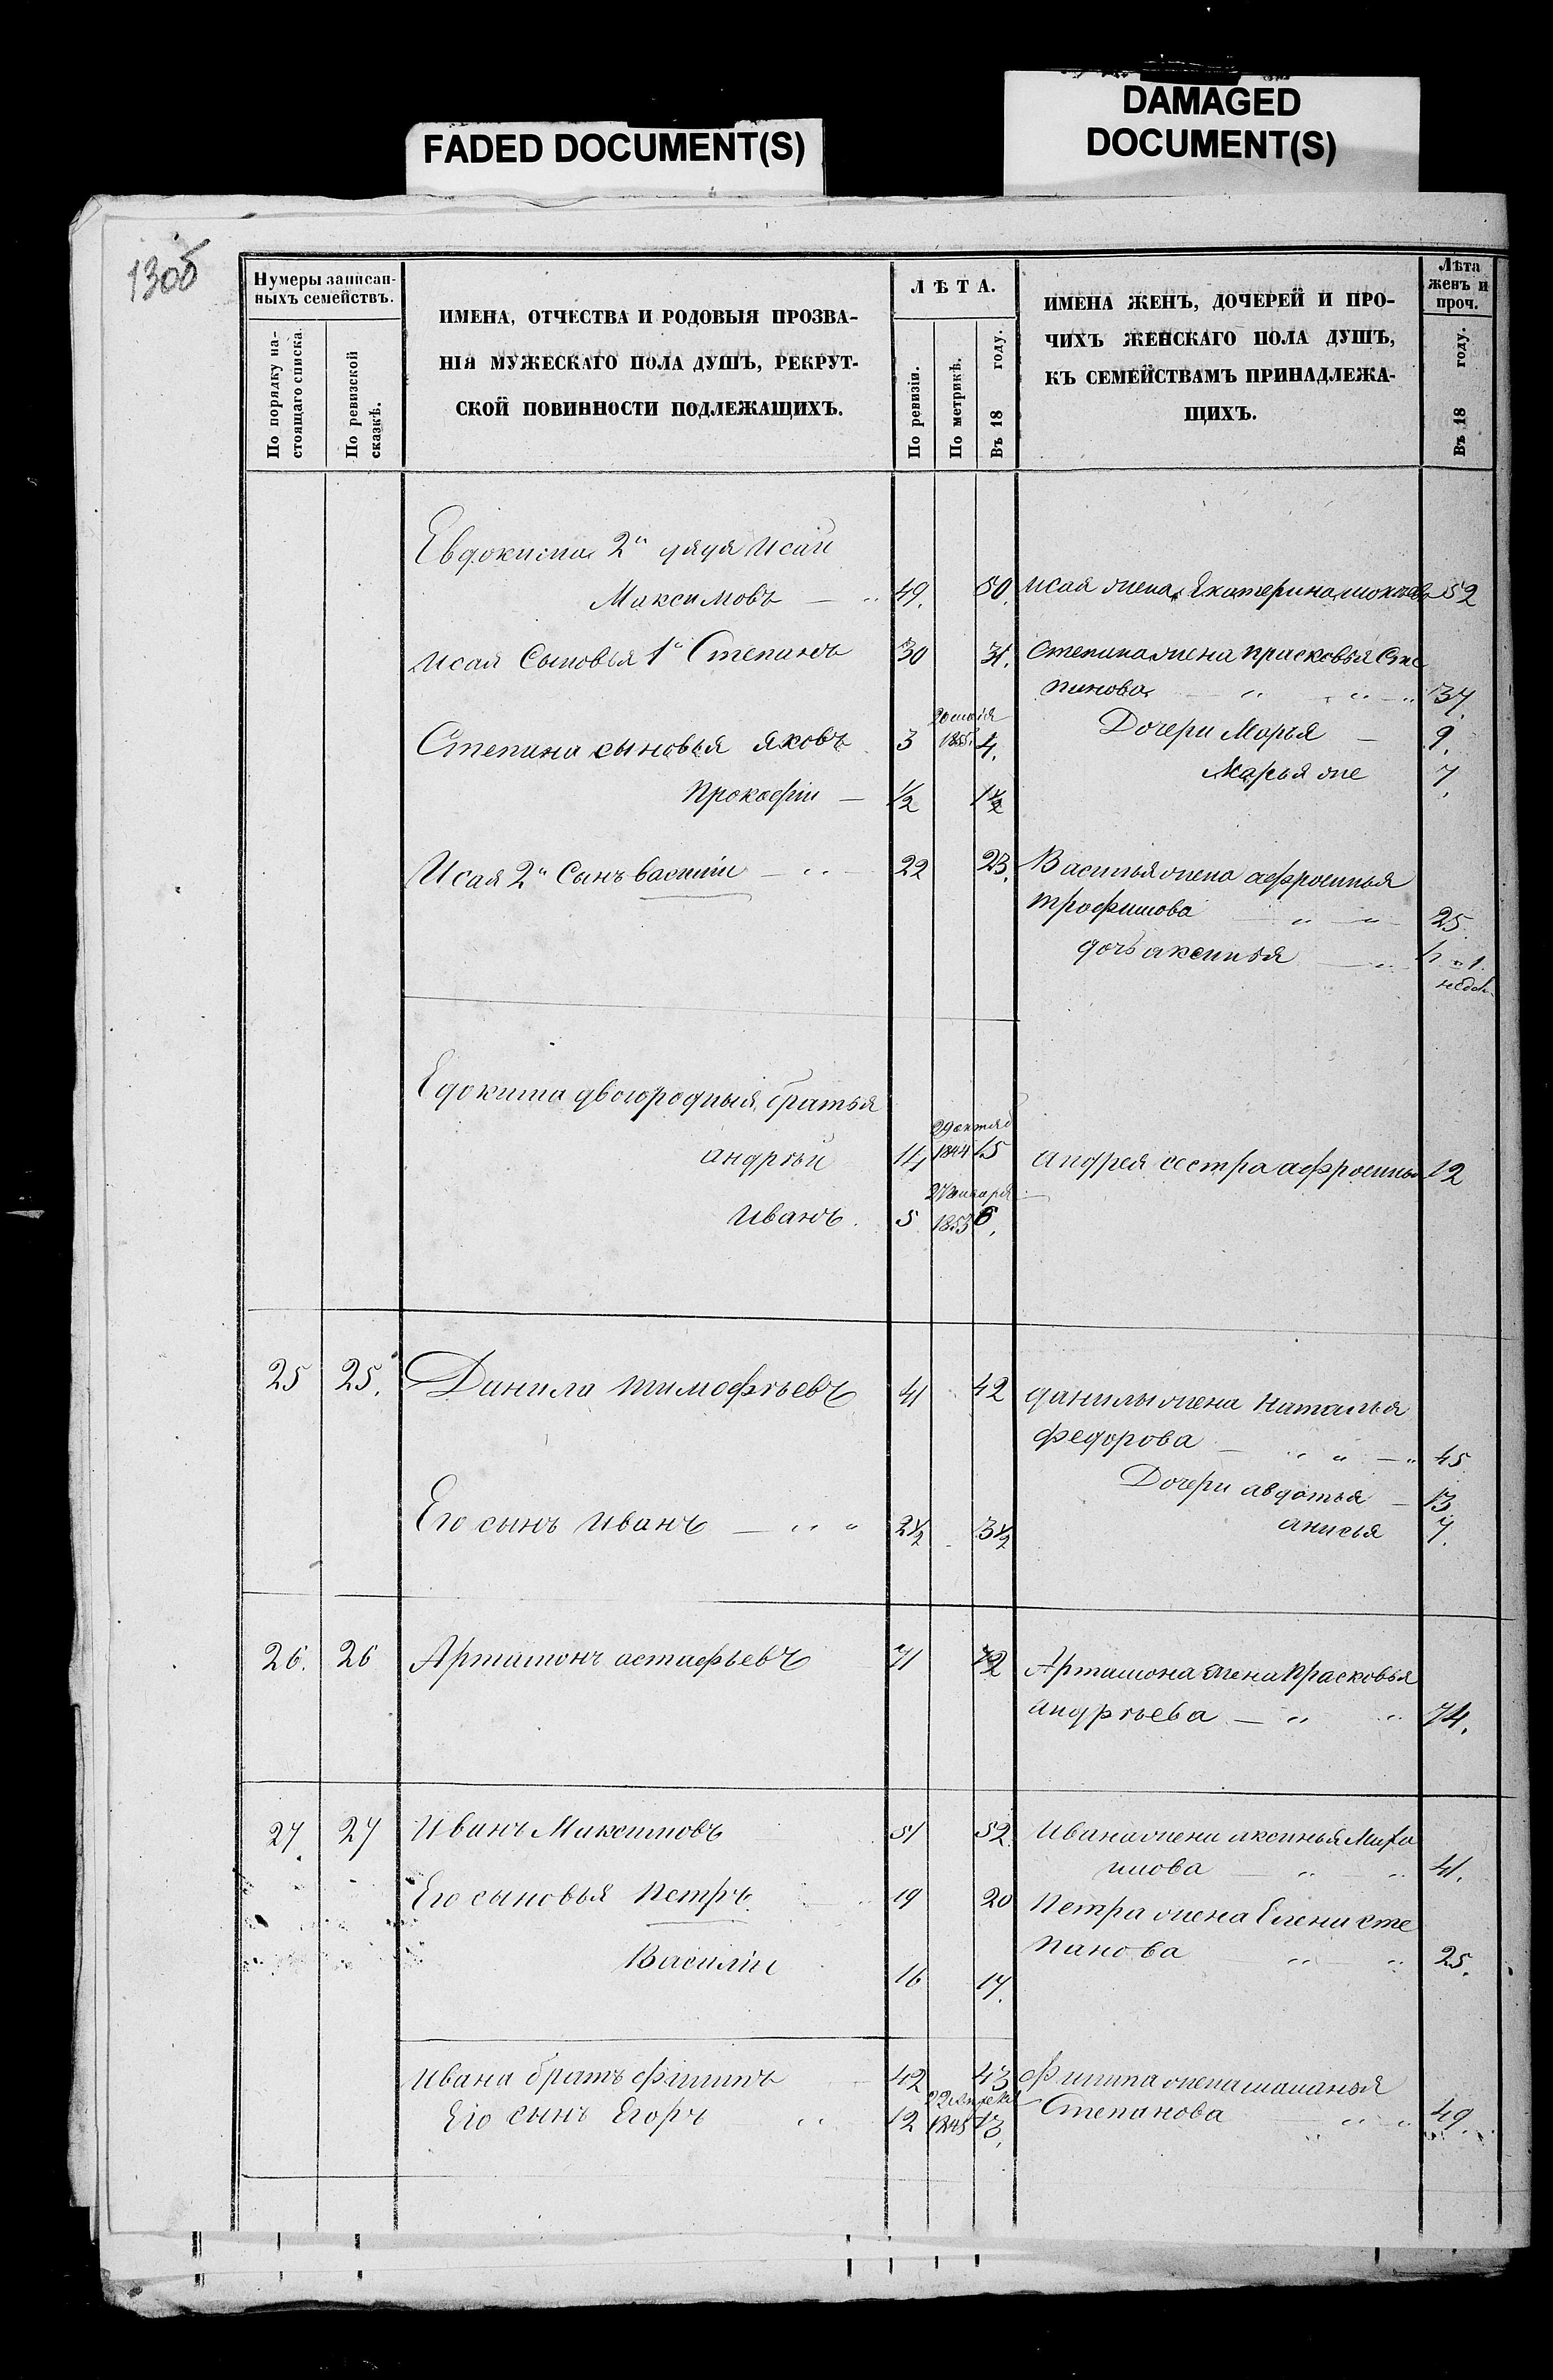 FADED DOCUMENT(S)
DAMAGED
DOCUMENT(S)
130об
Нумеры записан-
ныхъ семействъ.
По порядку на-
стоящаго списка
По ревизской
сказкѣ.
ИМЕНА, ОТЧЕСТВА И РОДОВЫЯ ПРОЗВА-
НІЯ МУЖЕСКАГО ПОЛА ДУШЪ, РЕКРУТ-
СКОЙ ПОВИННОСТИ ПОДЛЕЖАЩИХЪ.
ЛѢТА.
По ревизіи.
По метрикѣ.
Въ 18 году.
ИМЕНА ЖЕНЪ, ДОЧЕРЕЙ И ПРО-
ЧИХЪ ЖЕНСКАГО ПОЛА ДУШЪ,
КЪ СЕМЕЙСТВАМЪ ПРИНАДЛЕЖА-
ЩИХЪ.
Лѣта
женъ и
проч.
Въ 18 году.
Евдокима 2й дядя Исай
Максимовъ 49. 50. Исая жена Екатерина 52
Исая Сыновья 1й Степанъ 30 31. Степана жена Прасковья Сте
панова 37.
Степана сыновья Яковъ 3 1855. 4. Дочери Морья 9.
Марья же 7.
Прокофій ½ 1½
Исая 2й Сынъ Василій 22 23. Василья жена Афросинья
Трофимова 25
дочь Аксинья
недѣл.
Едокима двоюродныя братья
Андрѣй 14 29 октяб 1844 15 Андрея сестра Афросинья 12
Иванъ. 5 27 января 1853 6.
25 25. Данила Тимофѣевъ 41 42 Данилы жена Наталья
Федорова 45
Дочери Авдотья 13
Его сынъ Иванъ 2½ 3½ Анисья 7.
26. 26 Артамонъ Астафьевъ 71 72 Артамона жена Прасковья
Андрѣева 74.
27. 27 Иванъ Максимовъ 51 52 Ивана жена Аксинья Миха
илова 41.
Его сыновья Петръ 19 20 Петра жена Елена Сте
панова 25.
Василій 16 17.
Ивана братъ Филипъ 42 43 Филипа жена Маланья
Степанова 49.
Его сынъ Егоръ 12 22 апреля 1845 13.